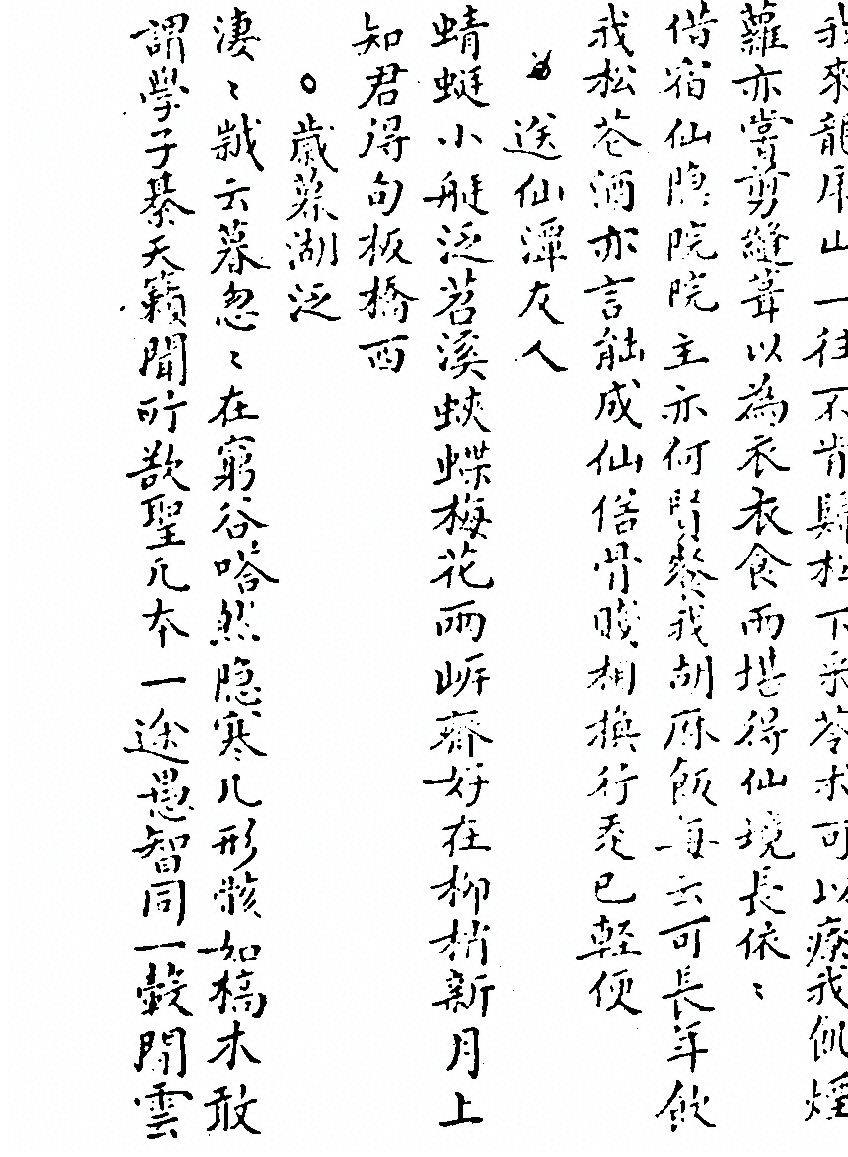 我來龍扅山一往不肯歸松下采苓朮可以療我飢煙
蘿亦嘗剪縫葺以為衣衣食兩堪得仙境長依〻
借宿仙隱院院主亦何賢餐我胡麻飯每云可長年飲
我松花酒亦言能成仙俗骨賤相換行𠫵已輕便
送仙潭友人
蜻蜓小艇泛苕溪蛺蝶梅花兩岍齋好在柳梢新月上
知君得句板橋西
○歲暮湖泛
淒〻歲云暮忽〻在窮谷嗒然隐寒几形骸如槁木敢
謂學子綦天籟聞所欲聖凡本一途愚智同一轂閒雲